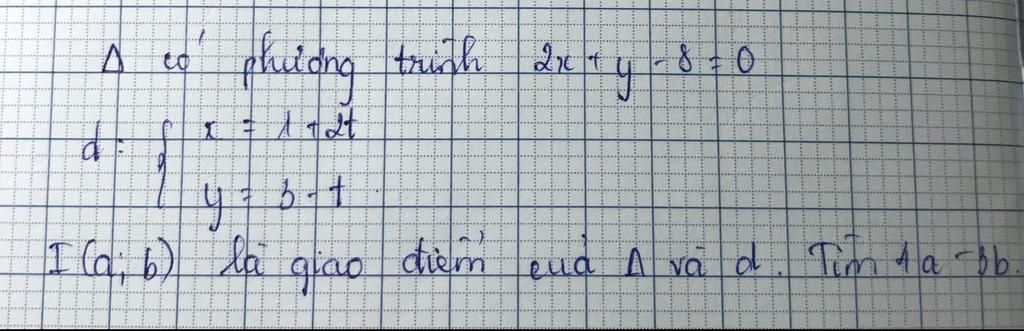 Δ có phương trình 2x + y - 8 = 0
d: { x = 1 + 2t
y = 3 - t
I(a; b) là giao điểm của Δ và d. Tìm 4a - 3b.